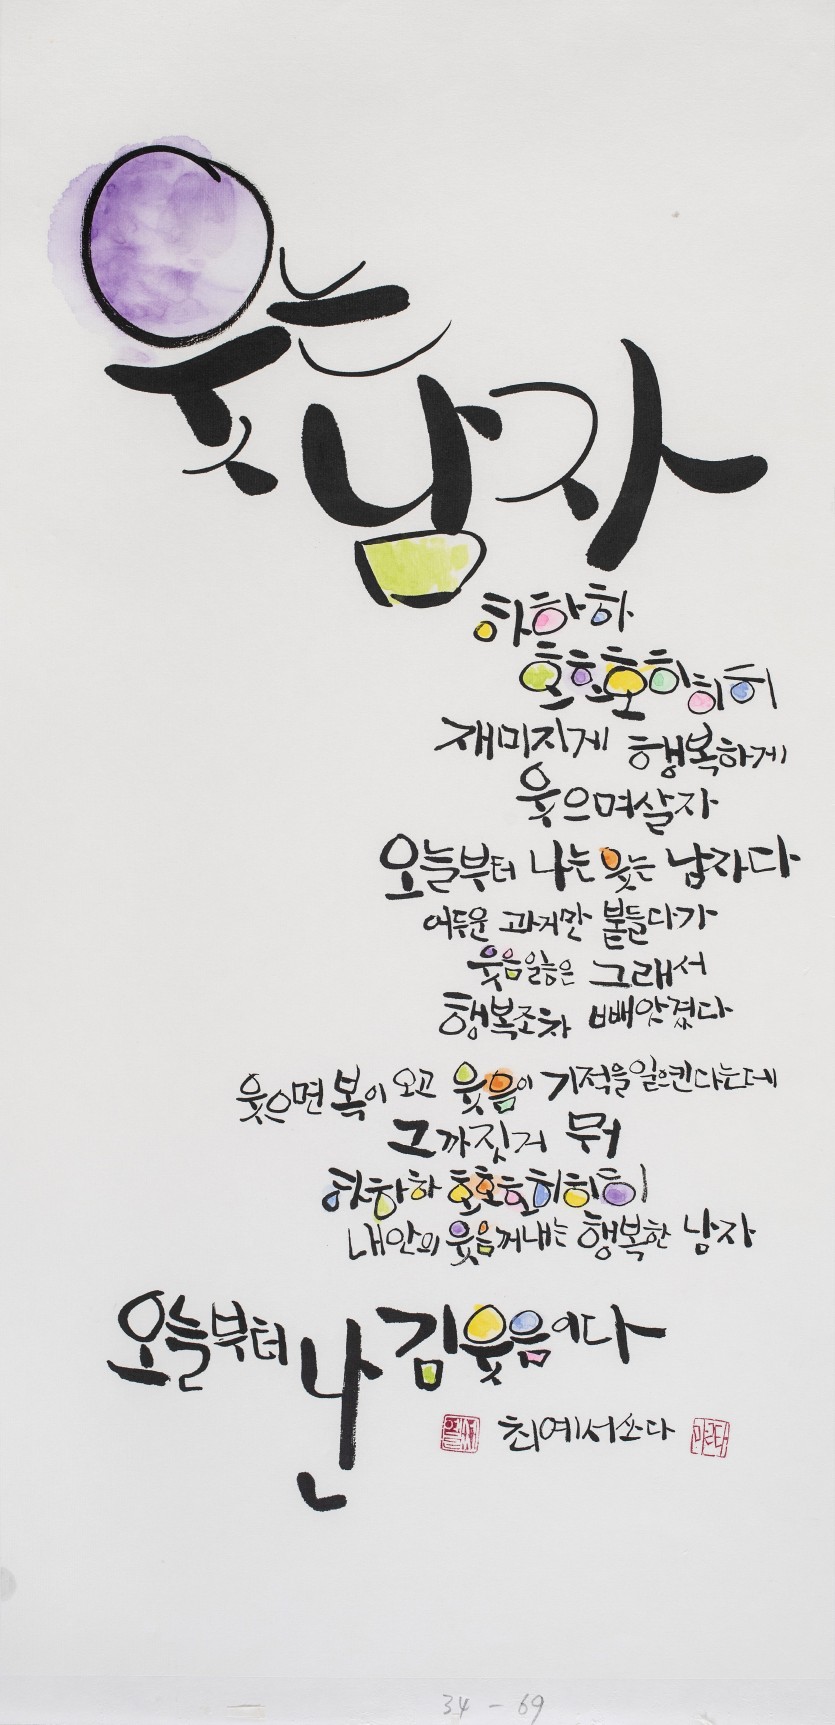 웃는
남자
하하하
호호호히히히
재미지게 행복하게
웃으며살자
오늘부터 나는 웃는 남자다
어두운 과거만 붙들다가
웃음잃은 그래서
행복조차 빼앗겼다
웃으면 복이 오고 웃음이 기적을 일으킨다는데
그까짓거 뭐
하하하 호호호 히히히
내안의 웃음꺼내는 행복한 남자
오늘부터 난 김웃음이다
최예서쓰다
34 - 69